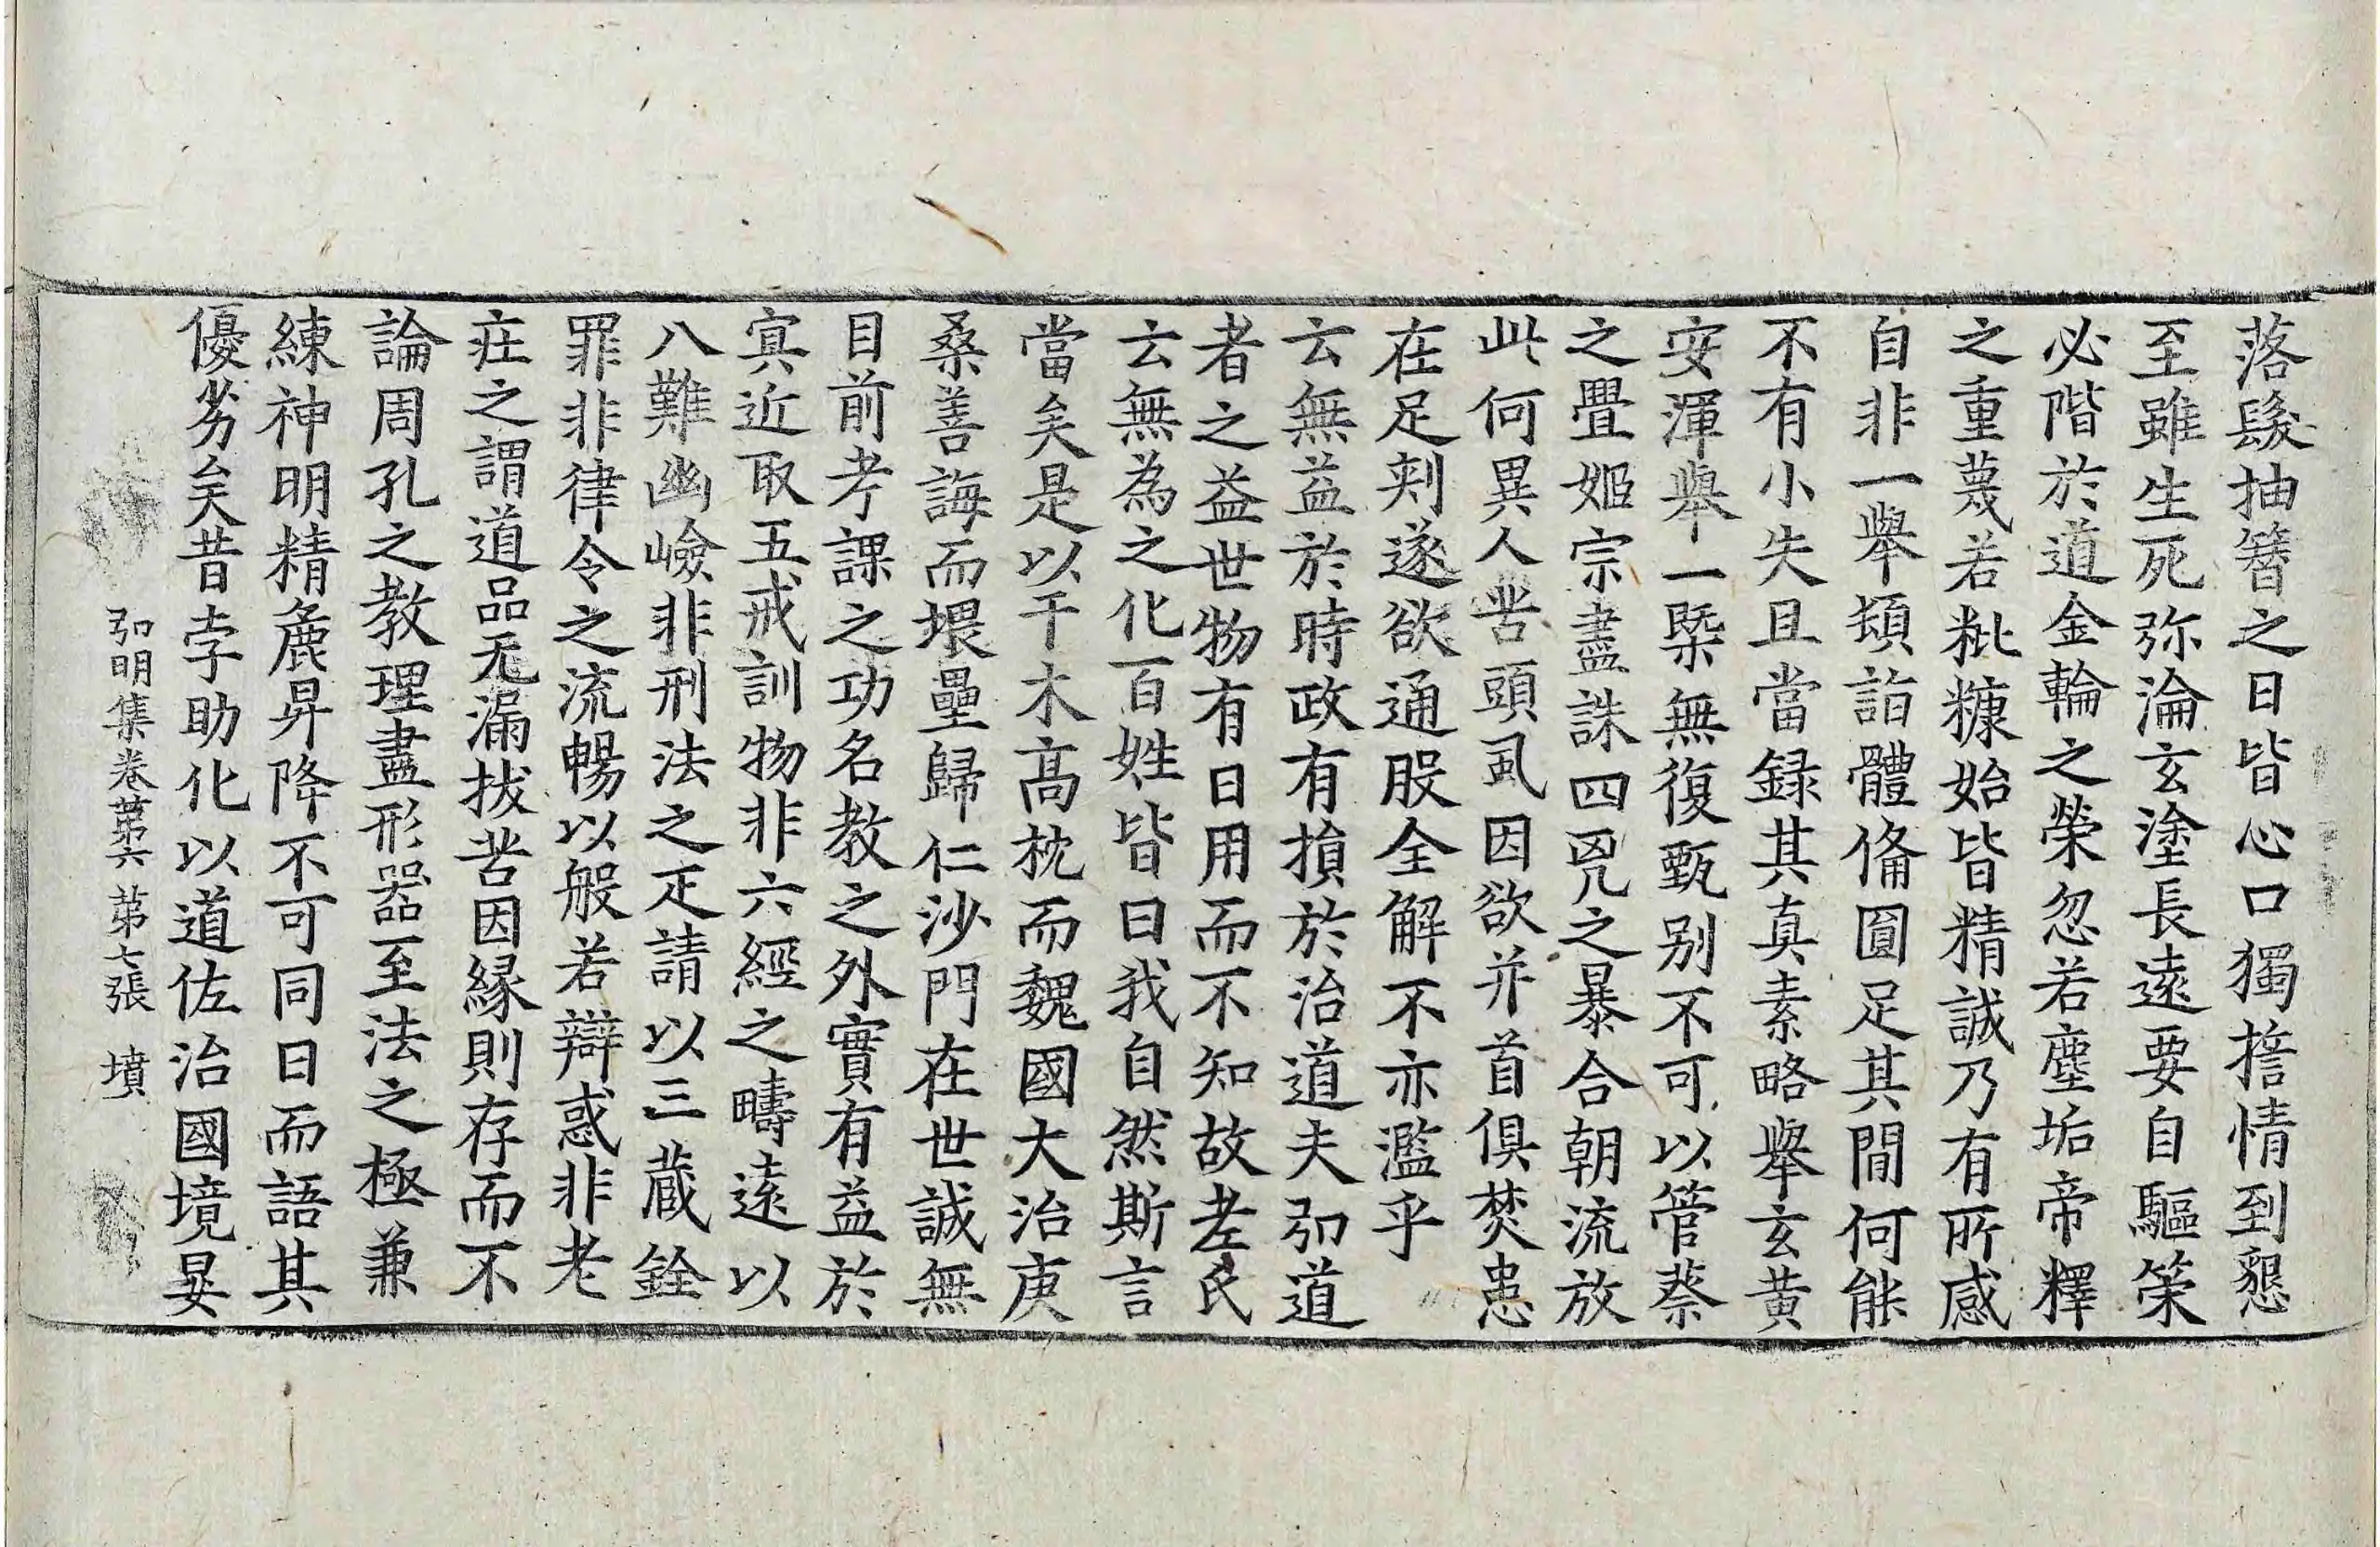 落髮抽簪之日皆心口獨擔情到懇
至雖生死弥淪玄塗長遠要自驅策
必階於道金輪之榮忽若塵垢帝釋
之重蔑若粃糠始皆精誠乃有所感
自非一舉頓詣體俻圓足其間何能
不有小失且當録其真素略舉玄黃
安渾舉一槩無復甄别不可以管蔡
之舋姬宗盡誅四㐫之暴合朝流放
此何異人苦頭虱因欲并首俱焚患
在足刾遂欲通股全解不亦濫乎
云無益於時政有損於治道夫弘道
者之益世物有日用而不知故老氏
云無為之化百姓皆曰我自然斯言
當矣是以干木髙枕而魏國大治庚
桑善誨而㟪壘歸仁沙門在世誠無
目前考課之功名教之外實有益於
㝠近取五戒訓物非六經之疇遠以
八難幽嶮非刑法之疋請以三蔵銓
罪非律令之流暢以般若辯惑非老
疘之謂道品无漏拔苦因緣則存而不
論周孔之教理盡形器至法之極兼
練神明精麁昇降不可同日而語其
優劣矣昔孛助化以道佐治國境晏
弘明集卷苐六 苐七張 墳